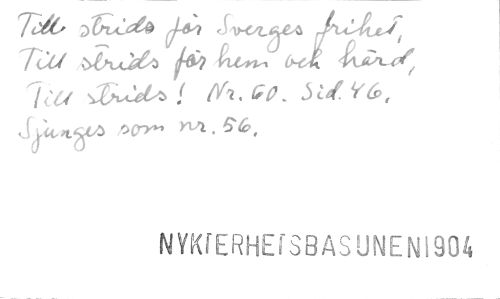 Till strids för Sverges frihet,
Till strids för hem och härd,
Till strids! Nr. 60. Sid. 46.
Sjunges som nr. 56.
NYKTERHETSBASUNEN1904